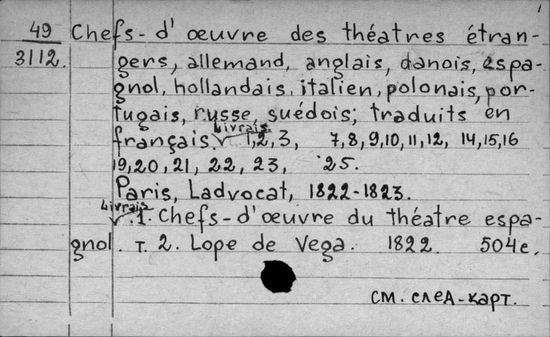 1
49 Chefs-d'œuvre des théatres étran-
3112. gers, allemand, anglais, danois, espa-
gnol, hollandais, italien, polonais, por-
tugais, russe, suédois; traduits en
Livrais.
français. 1, 2, 3, 7, 8, 9, 10, 11, 12, 14, 15, 16
19, 20, 21, 22, 23, 25.
Paris, Ladvocat, 1822-1823.
Livrais.
1. Chefs-d'œuvre du théatre espa-
gnol. т. 2. Lope de Vega. 1822. 504 с.
см. след-карт.